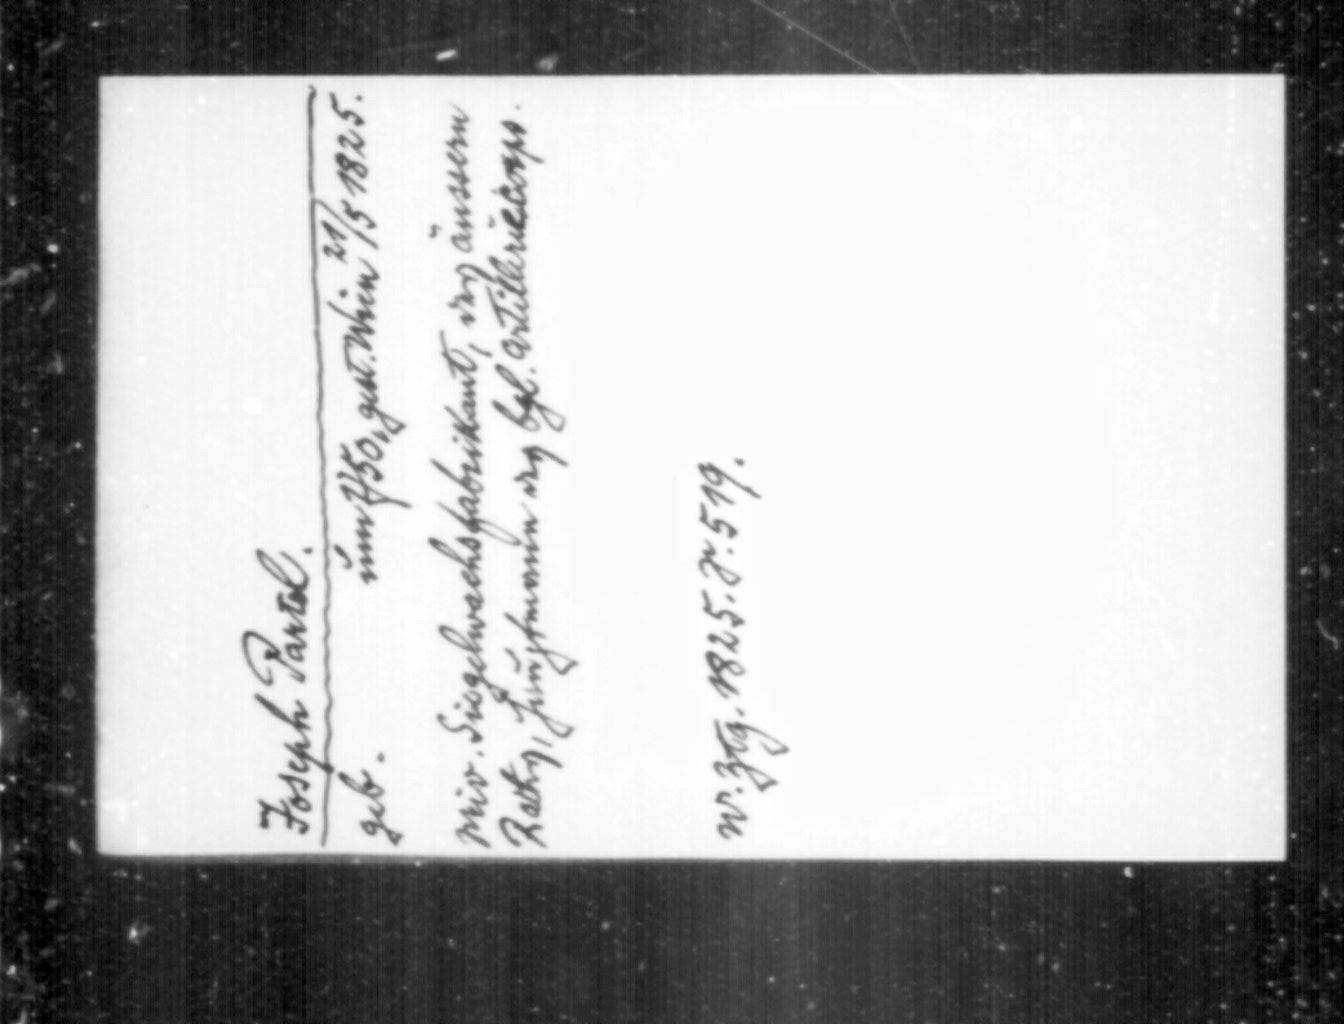 Joseph Partel.
geb. um 1750, gest. Wien 21/5 1825.
priv. Siegelwachsfabrikant, des äussern
Raths, Hauptmann des bgl. Artilleriecorps.
W. Ztg. 1825. S. 519.